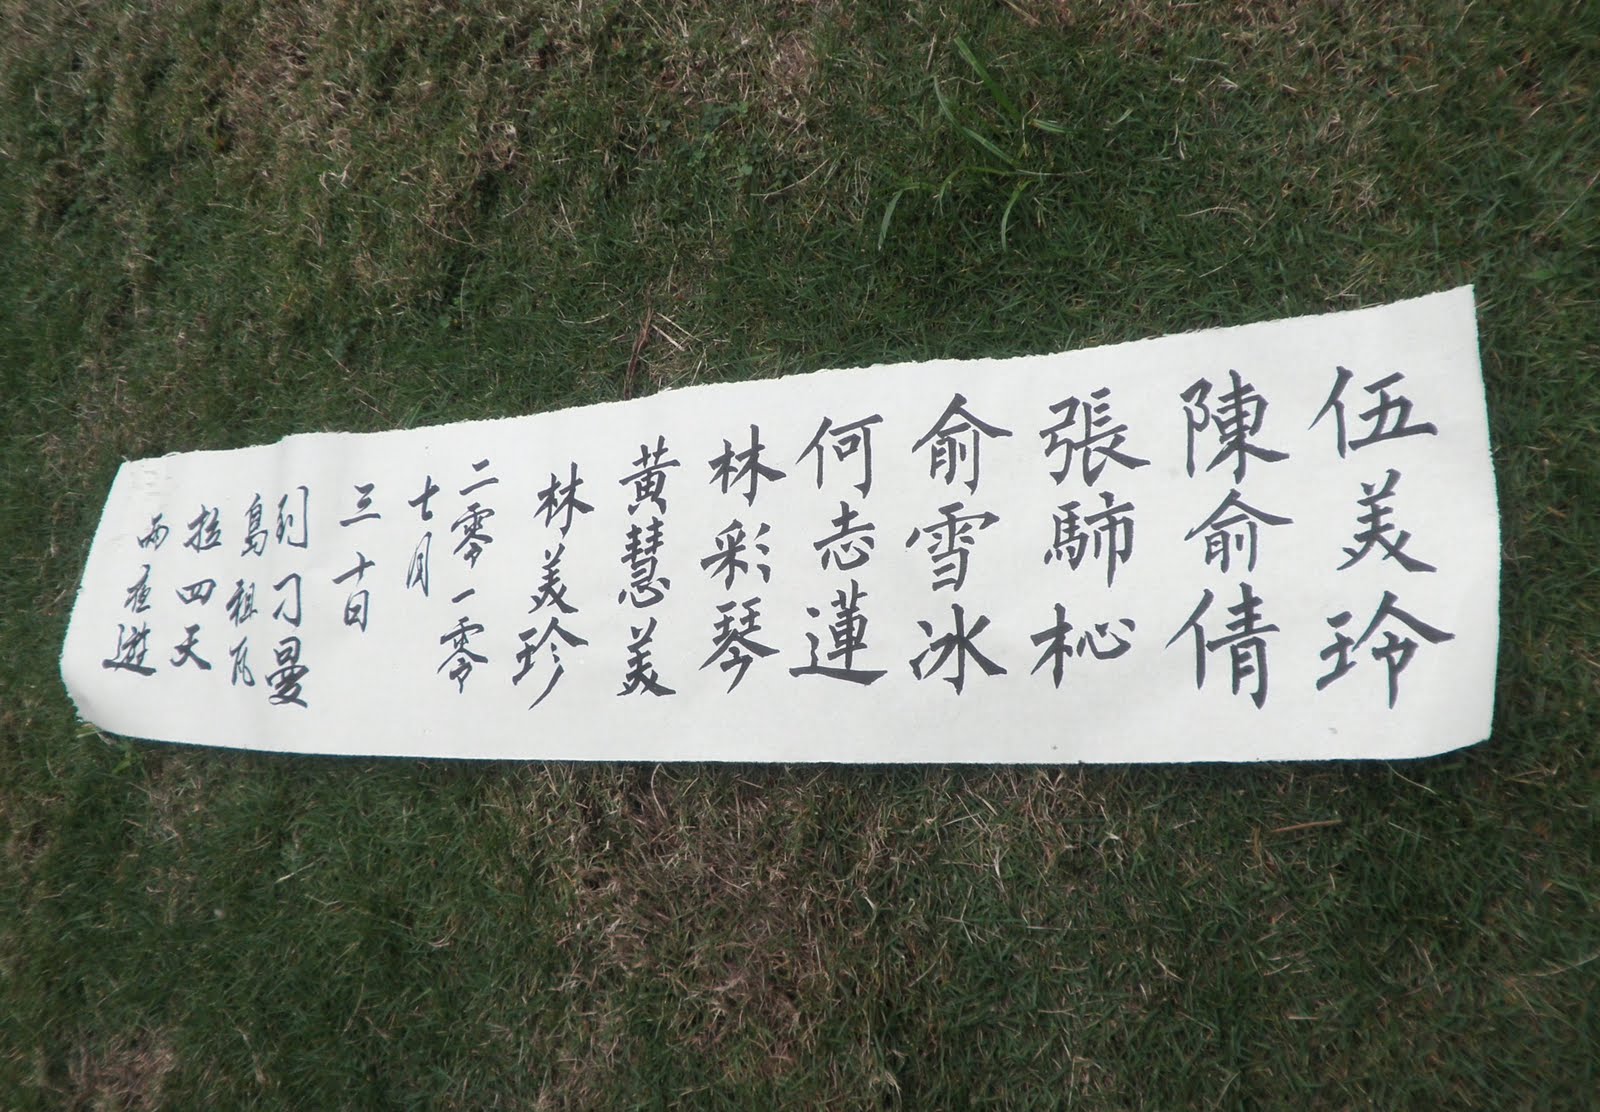 伍美玲
陳俞倩
張杺
俞雪冰
何志蓮
林彩琴
黄慧美
林美珍
二零一零
七月
三十日
到刁曼
島祖瓦
拉四天
兩夜遊